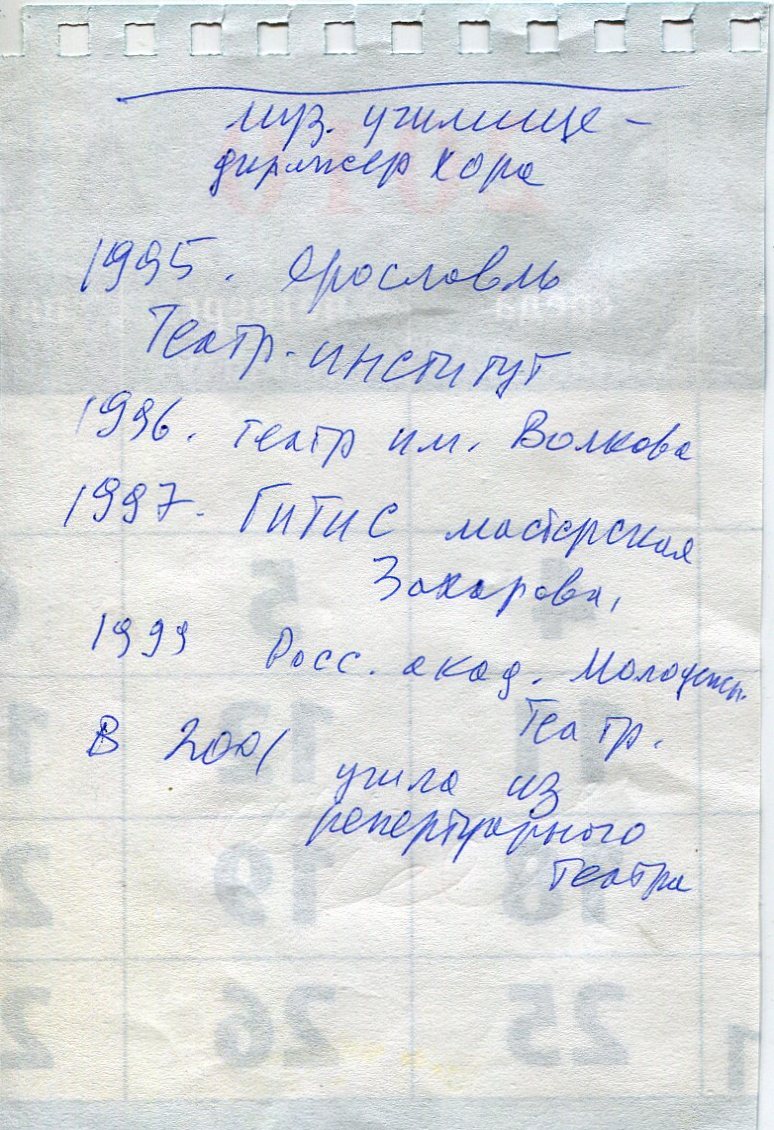 муз. училище –
дирижер хора
1995. Ярославль
Театр. институт
1996. театр им. Волкова
1997. ГИТИС мастерская
Захарова,
1999 Росс. акад. Молодежн.
Театр.
В 2001
ушла из
репертуарного
театра